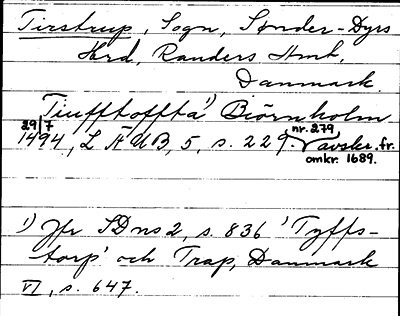 Tirstrup, Sogn, Sønder-Dyrs
Hrd, Randers Amt,
Danmark.
Tiufftoffta¹) Biörnholm
29/7 1494, LÄUB, 5, s. 229. nr. 279 avskr. fr. omkr. 1689.
¹) Jfr SDns 2, s. 836 'Tyffs-
torp' och Trap, Danmark
VI, s. 647.